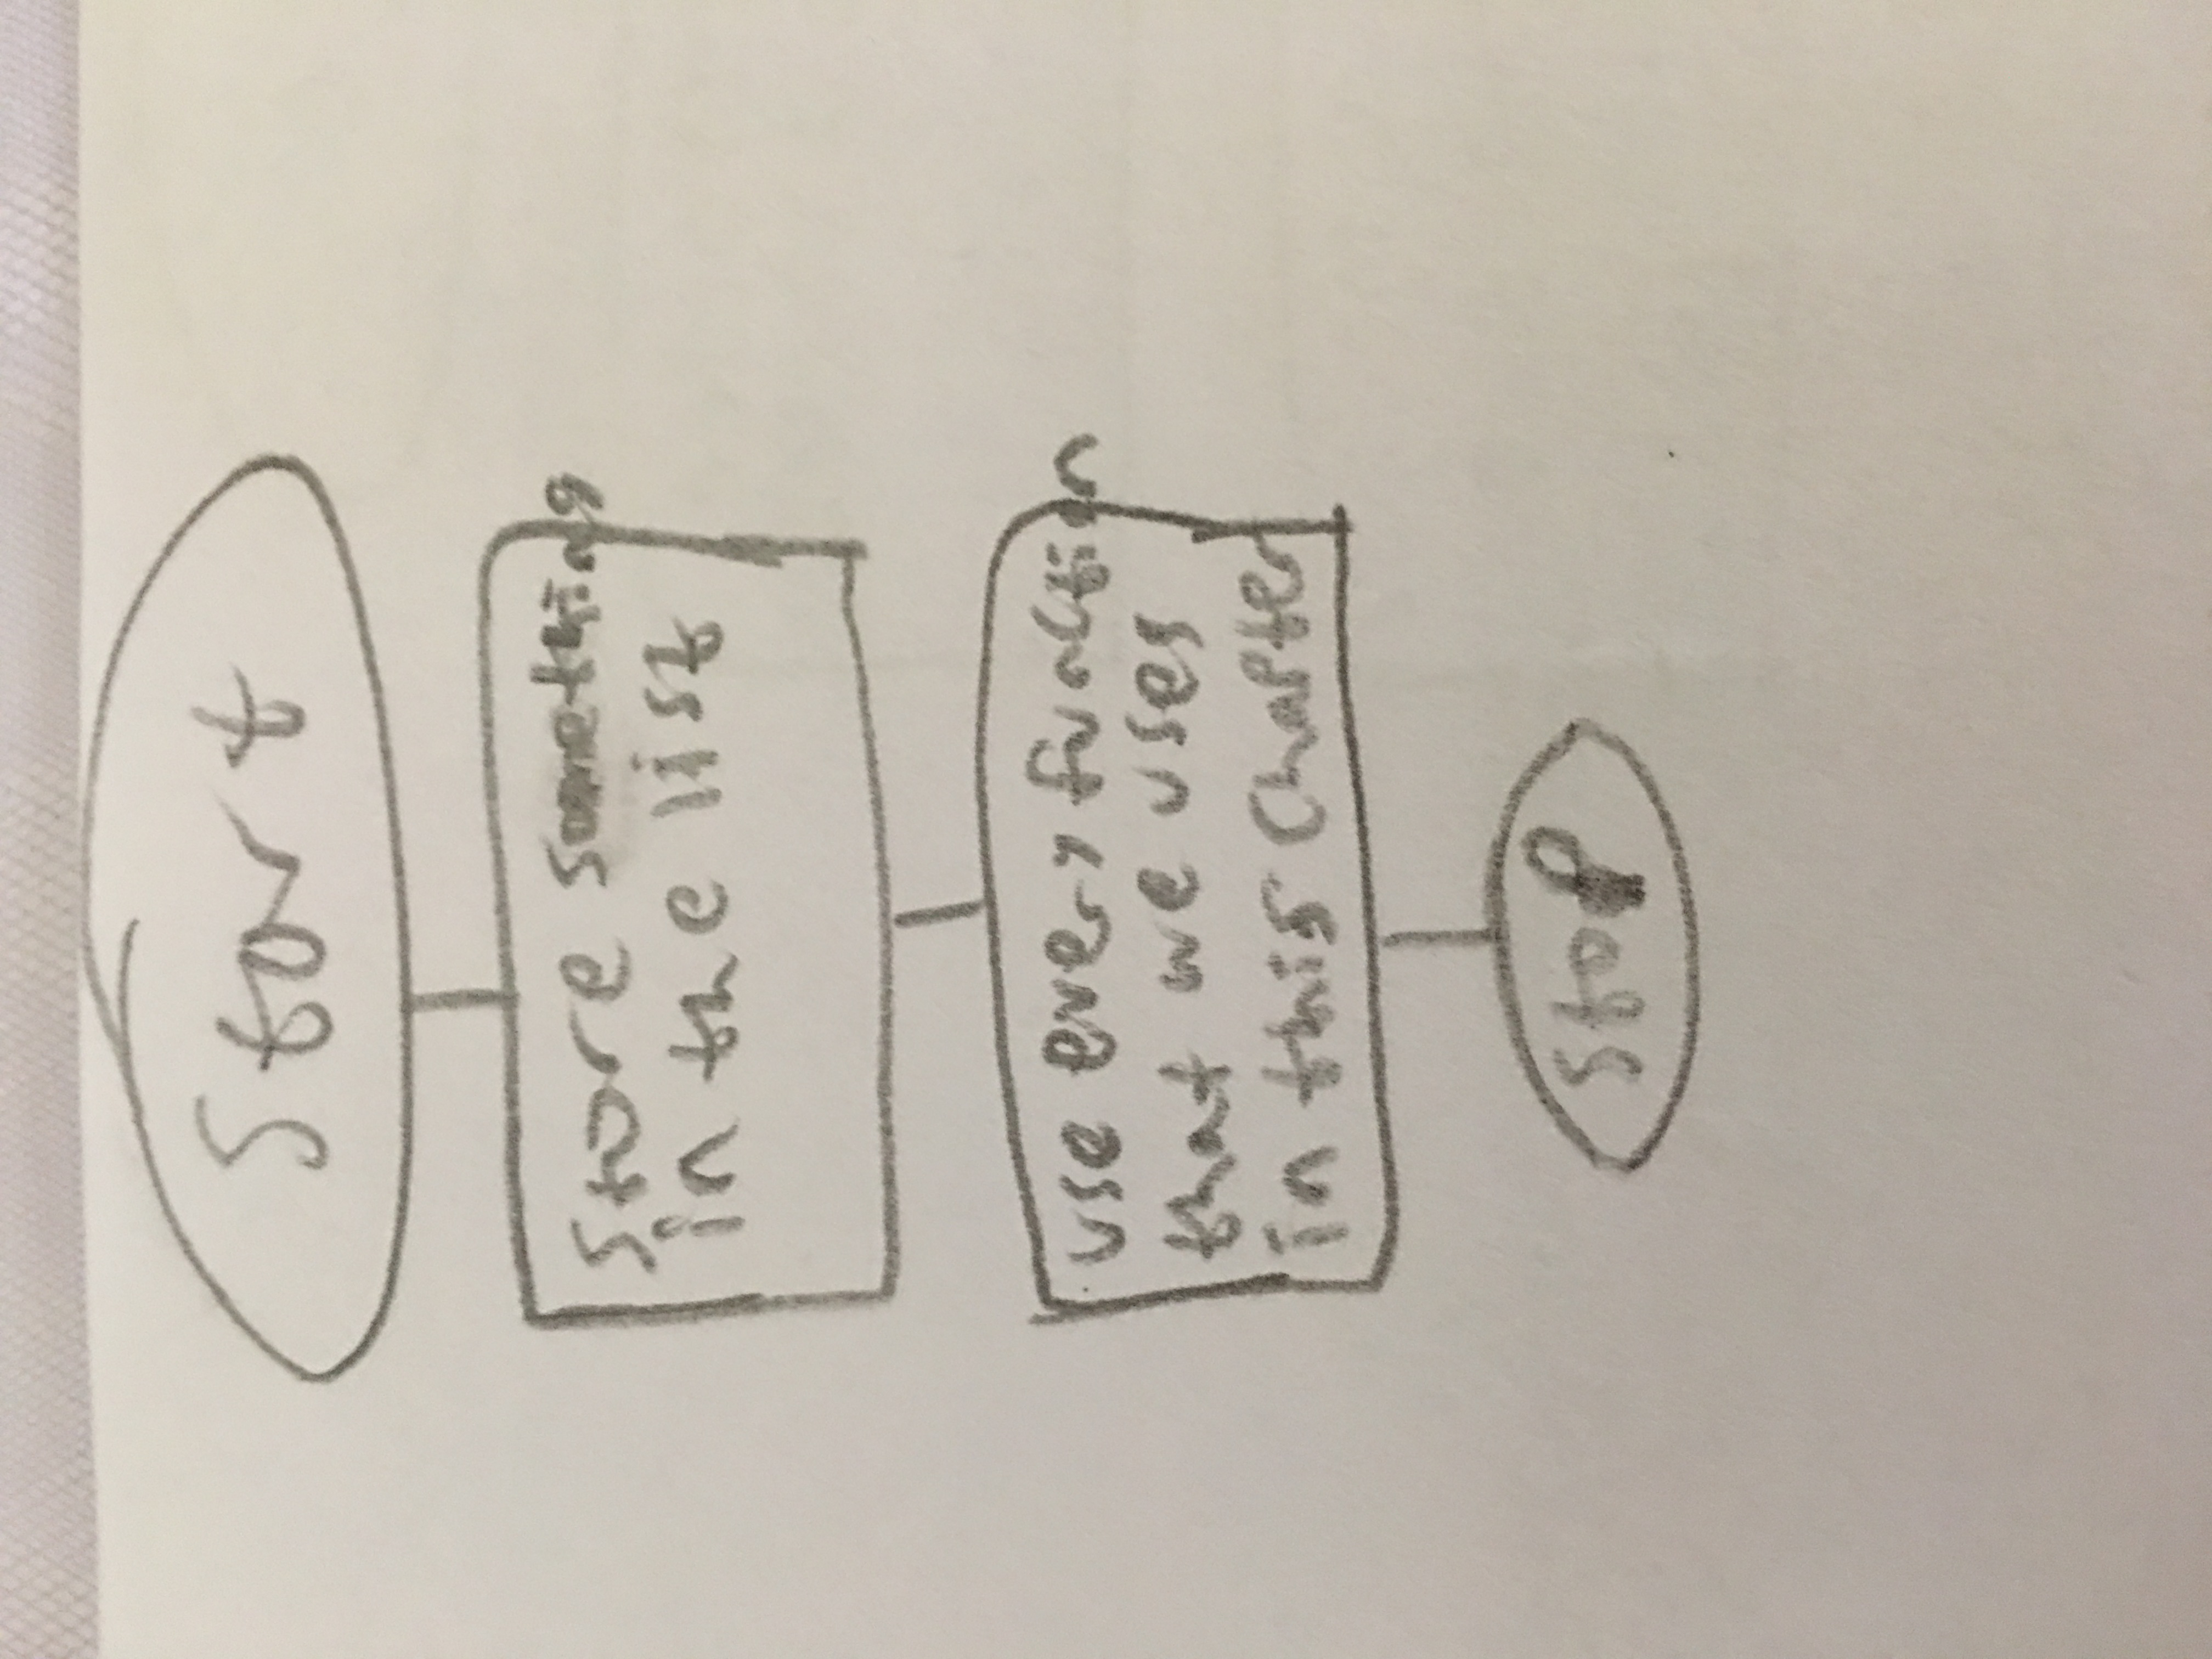 Start
Store something
in the list
use every function
that we uses
in this Chapter
Stop